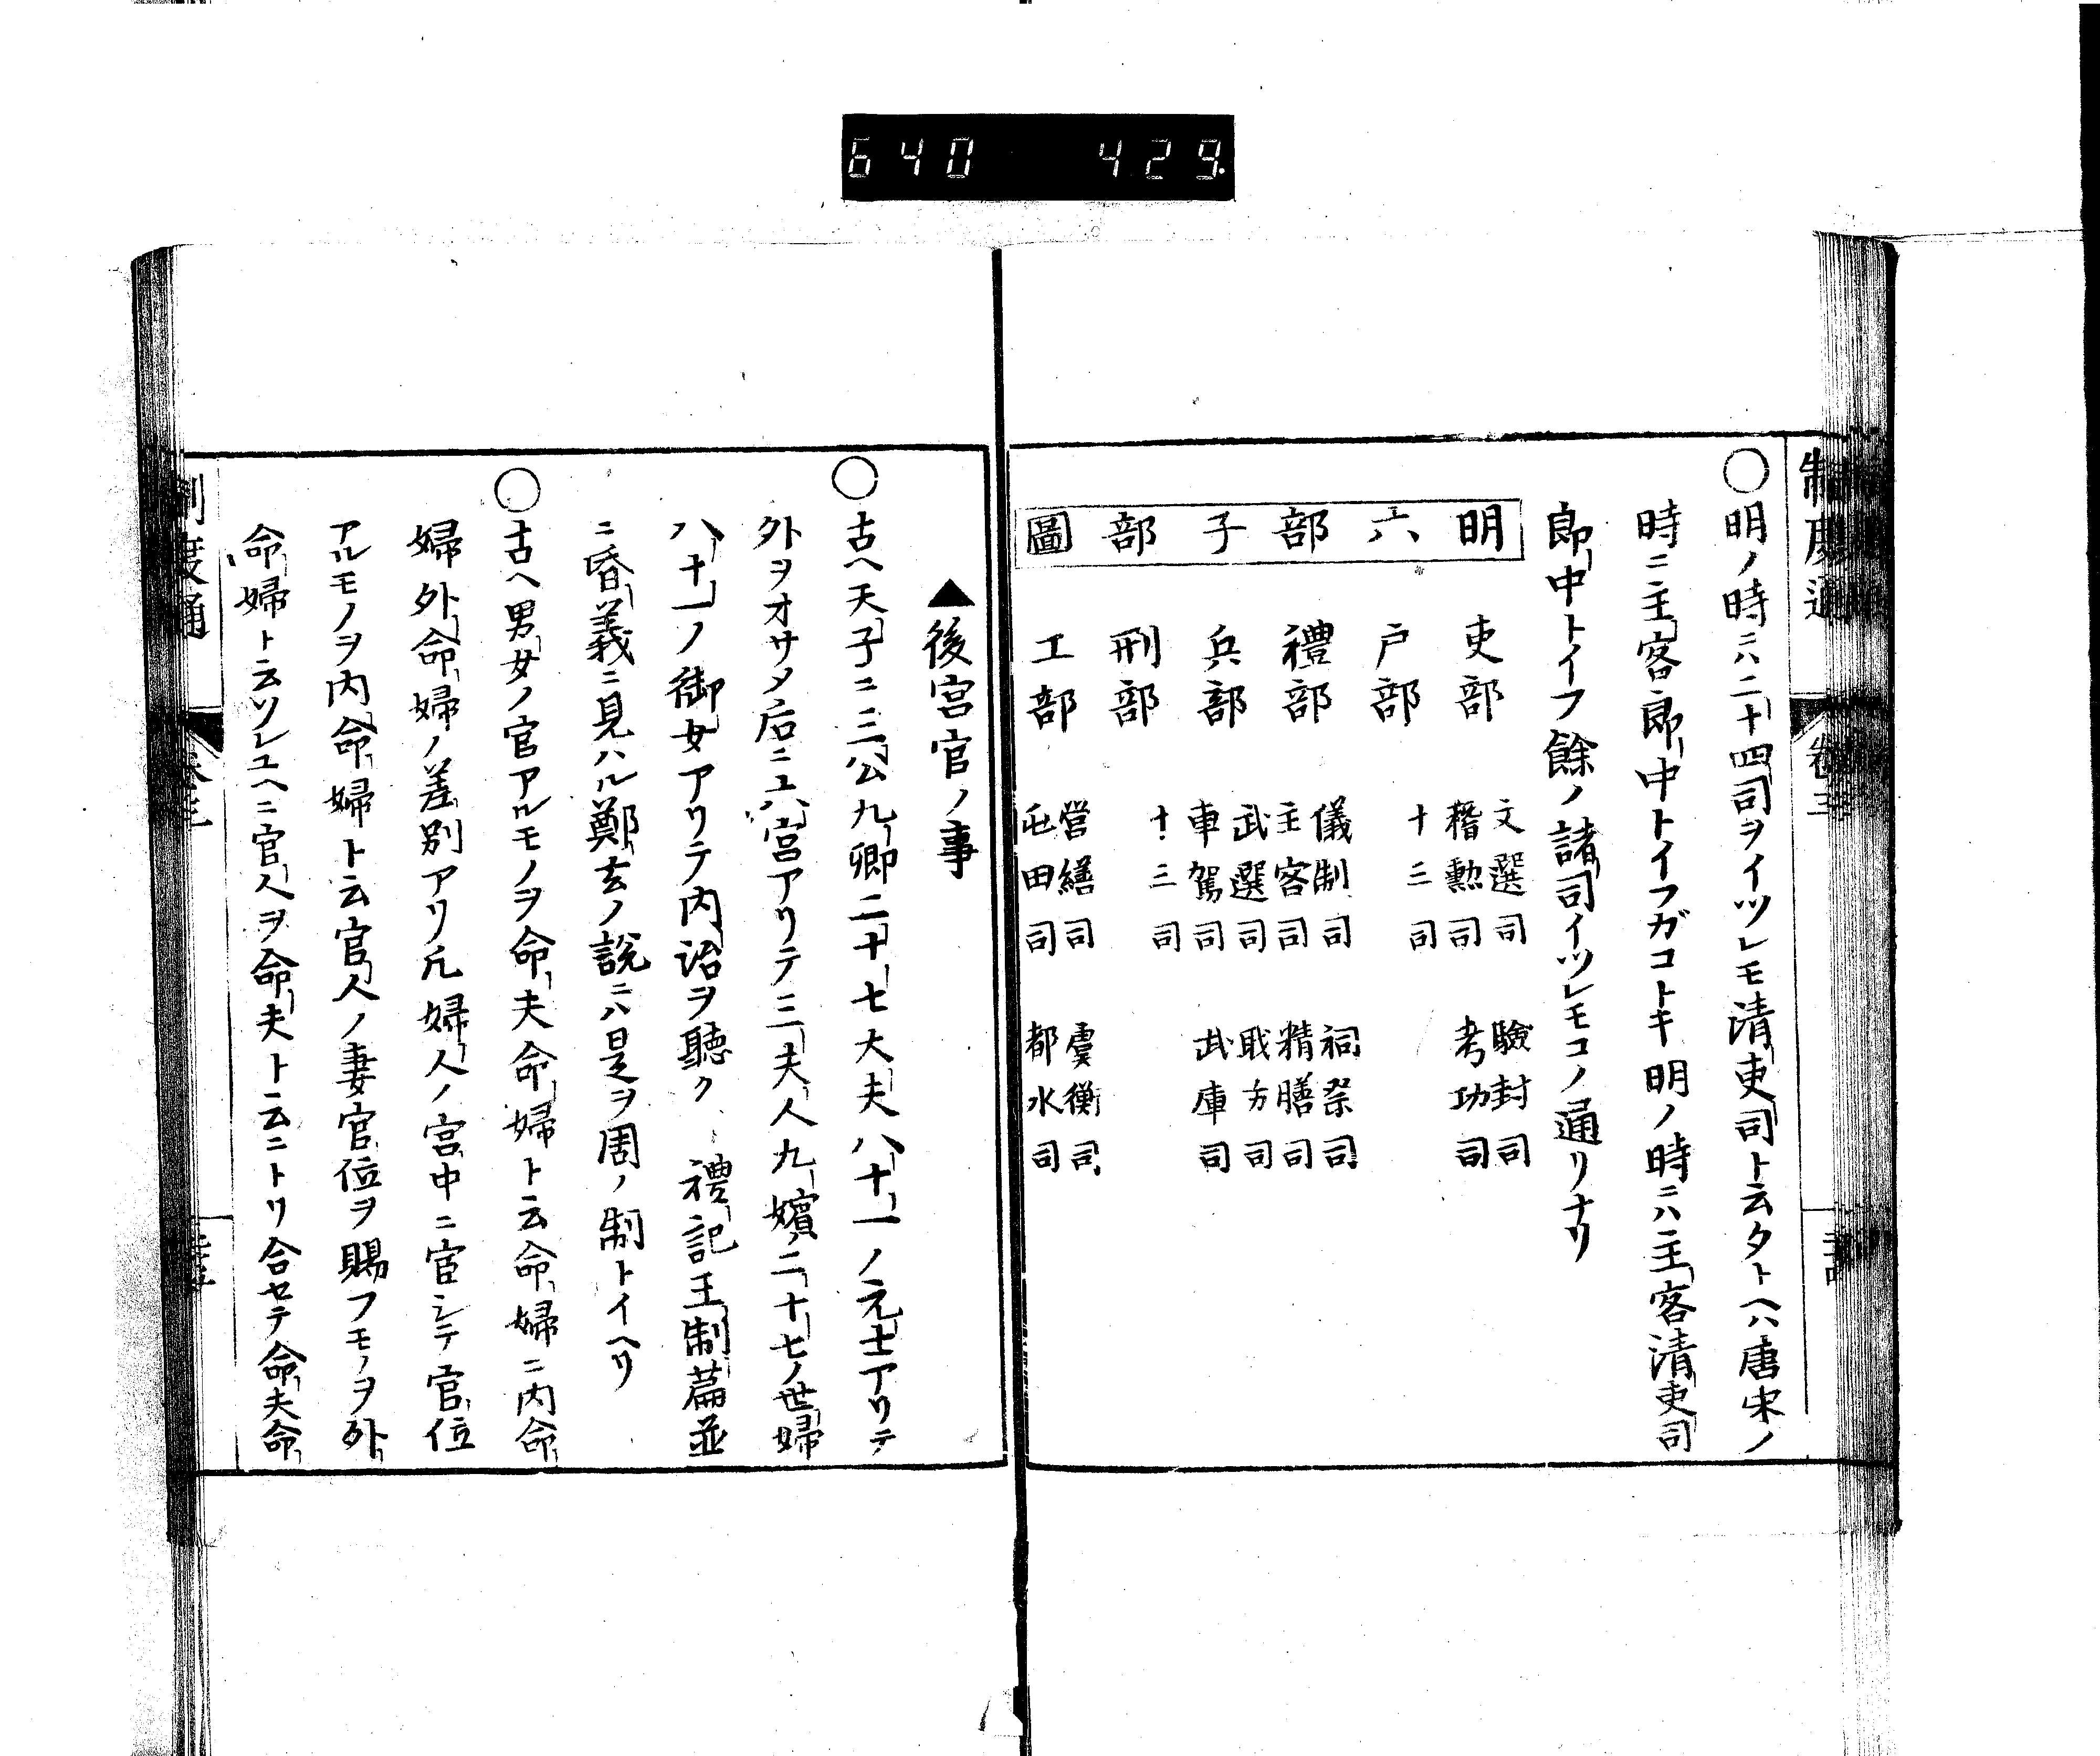 640 429.
制度通
卷三
○明ノ時ニハ二十四司ヲイツレモ清吏司ト云タトヘハ唐宋ノ
時ニ主客郎中トイフガコトキ明ノ時ニハ主客清吏司
郎中トイフ餘ノ諸司イツレモコノ通リナリ
明六部子部圖
吏部 文選司 驗封司
稽勲司 考功司
戸部 十三司
禮部 儀制司 祠祭司
主客司 精膳司
兵部 武選司 戝方司
車駕司 武庫司
刑部 十三司
工部 営繕司 虞衡司
屯田司 都水司
▲後宮官ノ事
○古ヘ天子ニ三公九卿二十七大夫八十一ノ元士アリテ
外ヲオサメ后ニ六宮アリテ三夫人九嬪二十七ノ世婦
八十一ノ御女アリテ内治ヲ聴ク 禮記王制篇並
ニ昏義ニ見ハル鄭玄ノ説ニハ是ヲ周ノ制トイヘリ
○古ヘ男女ノ官アルモノヲ命夫命婦ト云命婦ニ内命
婦外命婦ノ差別アリ凢婦人ノ宮中ニ宦シテ官位
アルモノヲ内命婦ト云官人ノ妻官位ヲ賜フモノヲ外
命婦ト云ソレユヘニ官人ヲ命夫ト云ニトリ合セテ命夫命
制度通
卷三